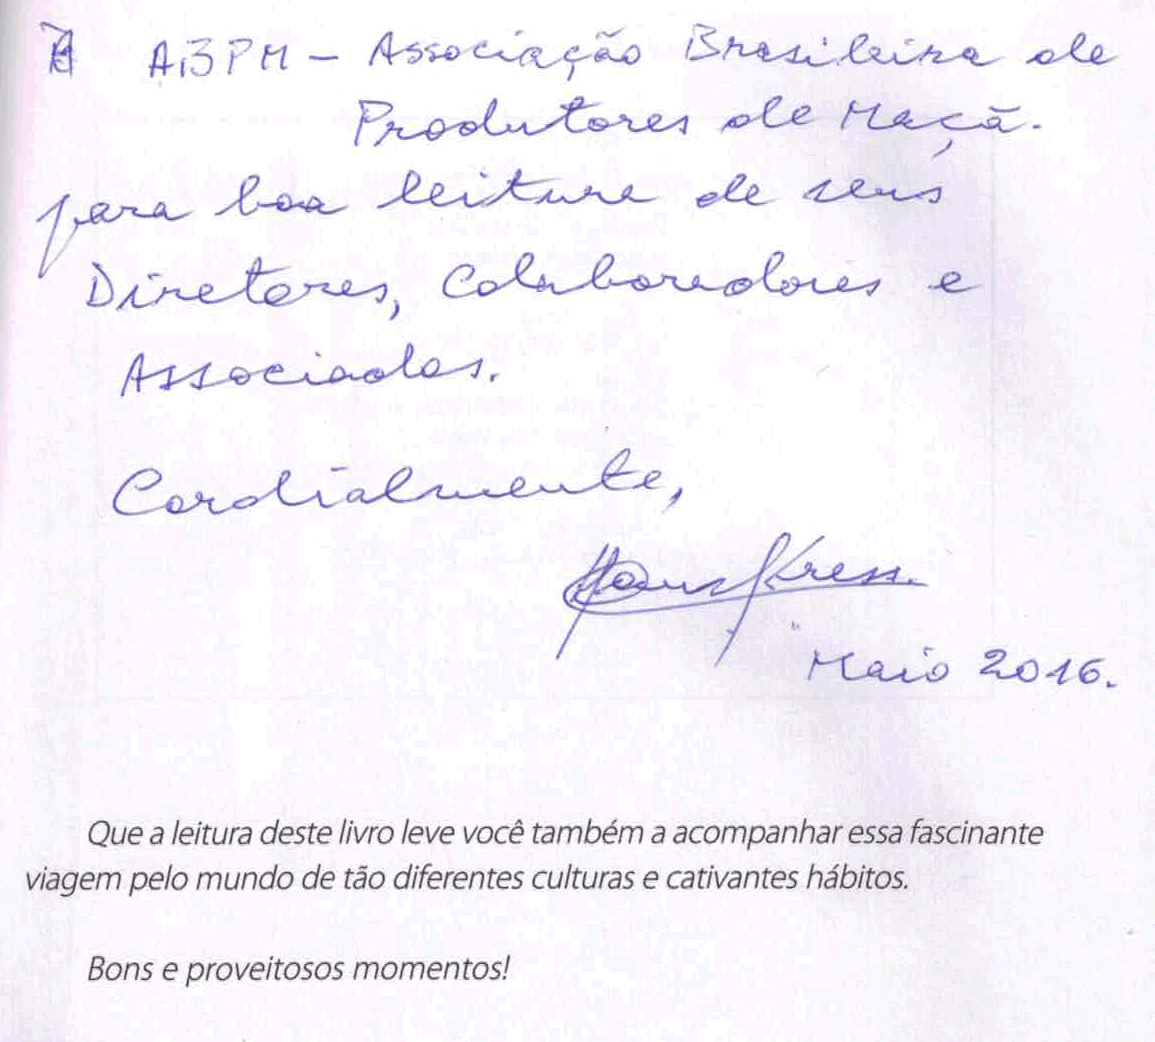 À ABPM - Associação Brasileira de
Produtores de Maçã.
para boa leitura de seus
Diretores, Colaboradores e
Associados.
Cordialmente,
Hans Kress.
Maio 2016.
Que a leitura deste livro leve você também a acompanhar essa fascinante
viagem pelo mundo de tão diferentes culturas e cativantes hábitos.
Bons e proveitosos momentos!